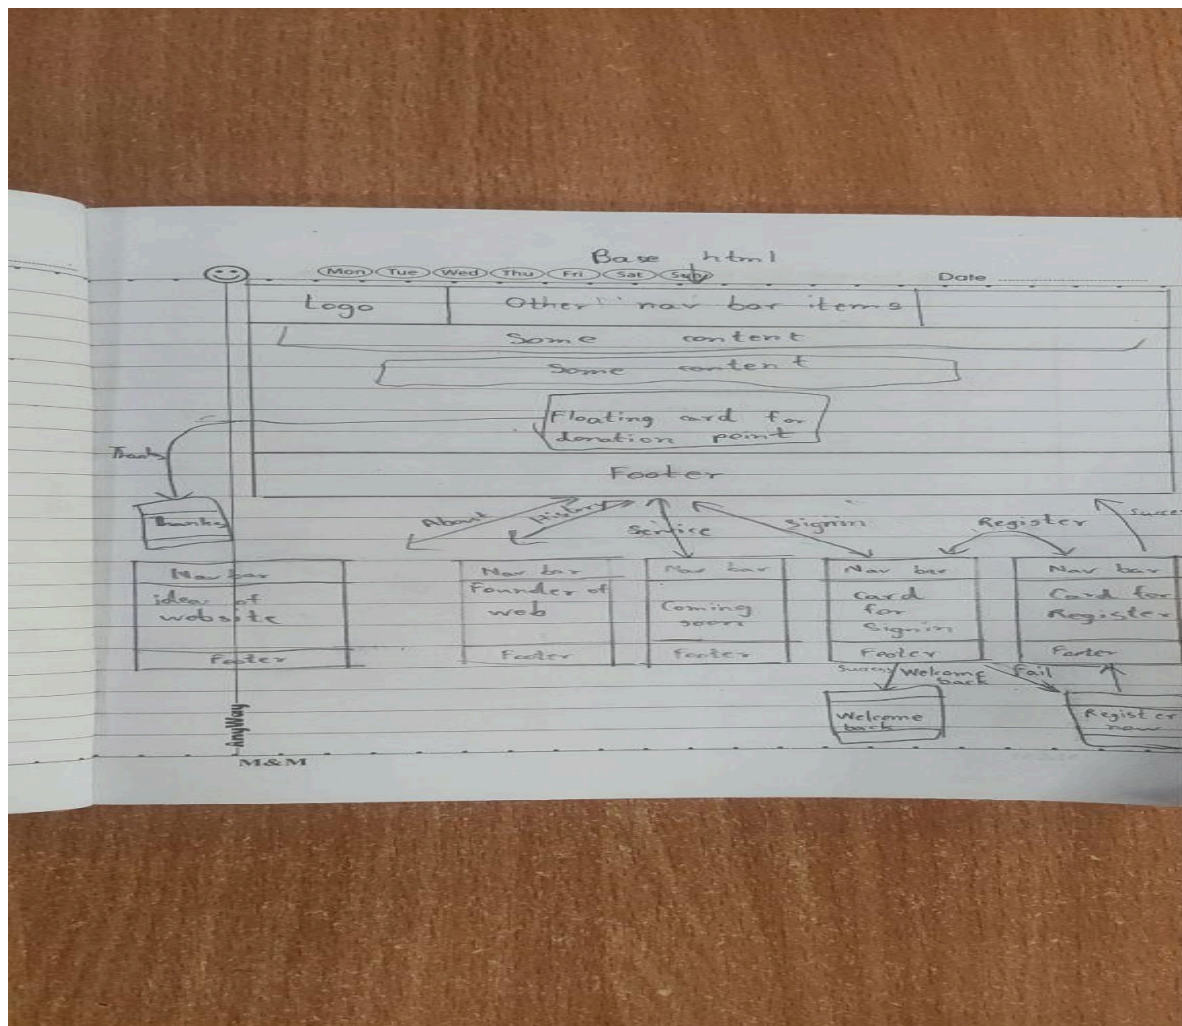 Base html
Mon Tue Wed Thu Fri Sat Sun
Date
Logo
Other nav bar items
Some content
Some content
Floating card for
donation point
Footer
Thanks
About
History
Service
Signin
Register
Nav bar
idea of
website
Footer
Nav bar
Founder of
web
Footer
Nav bar
Coming
soon
Footer
Nav bar
Card
for
Signin
Footer
Nav bar
Card for
Register
Footer
Success
Welcome
back
Fail
Welcome
back
Register
now
AnyWay
M&M